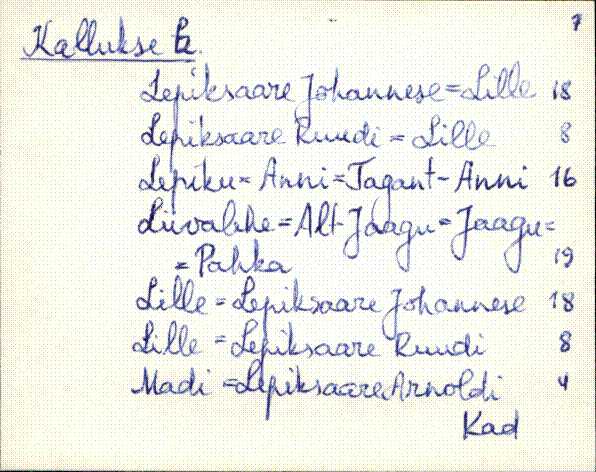 7
Kallukse k.
Lepiksaare Johannese = Lille 18
Lepiksaare Ruudi = Lille 8
Lepiku = Anni = Tagant-Anni 16
Liivalahe = Alt-Jaagu = Jaagu =
= Pahka 19
Lille = Lepiksaare Johannese 18
Lille = Lepiksaare Ruudi 8
Madi = Lepiksaare Arnoldi 4
Kad